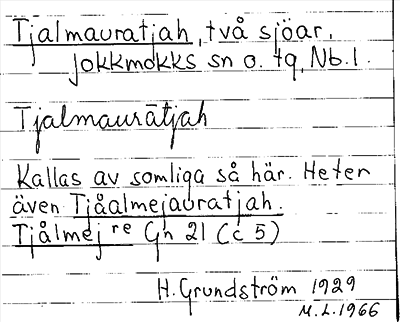 Tjalmauratjah, två sjöar,
Jokkmokks sn o. tg, Nb. l.
Tjalmaurātjah
Kallas av somliga så här. Heter
även Tjåalmejauratjah.
Tjålmej re Gh 21 (c 5)
H. Grundström 1929
M.L. 1966